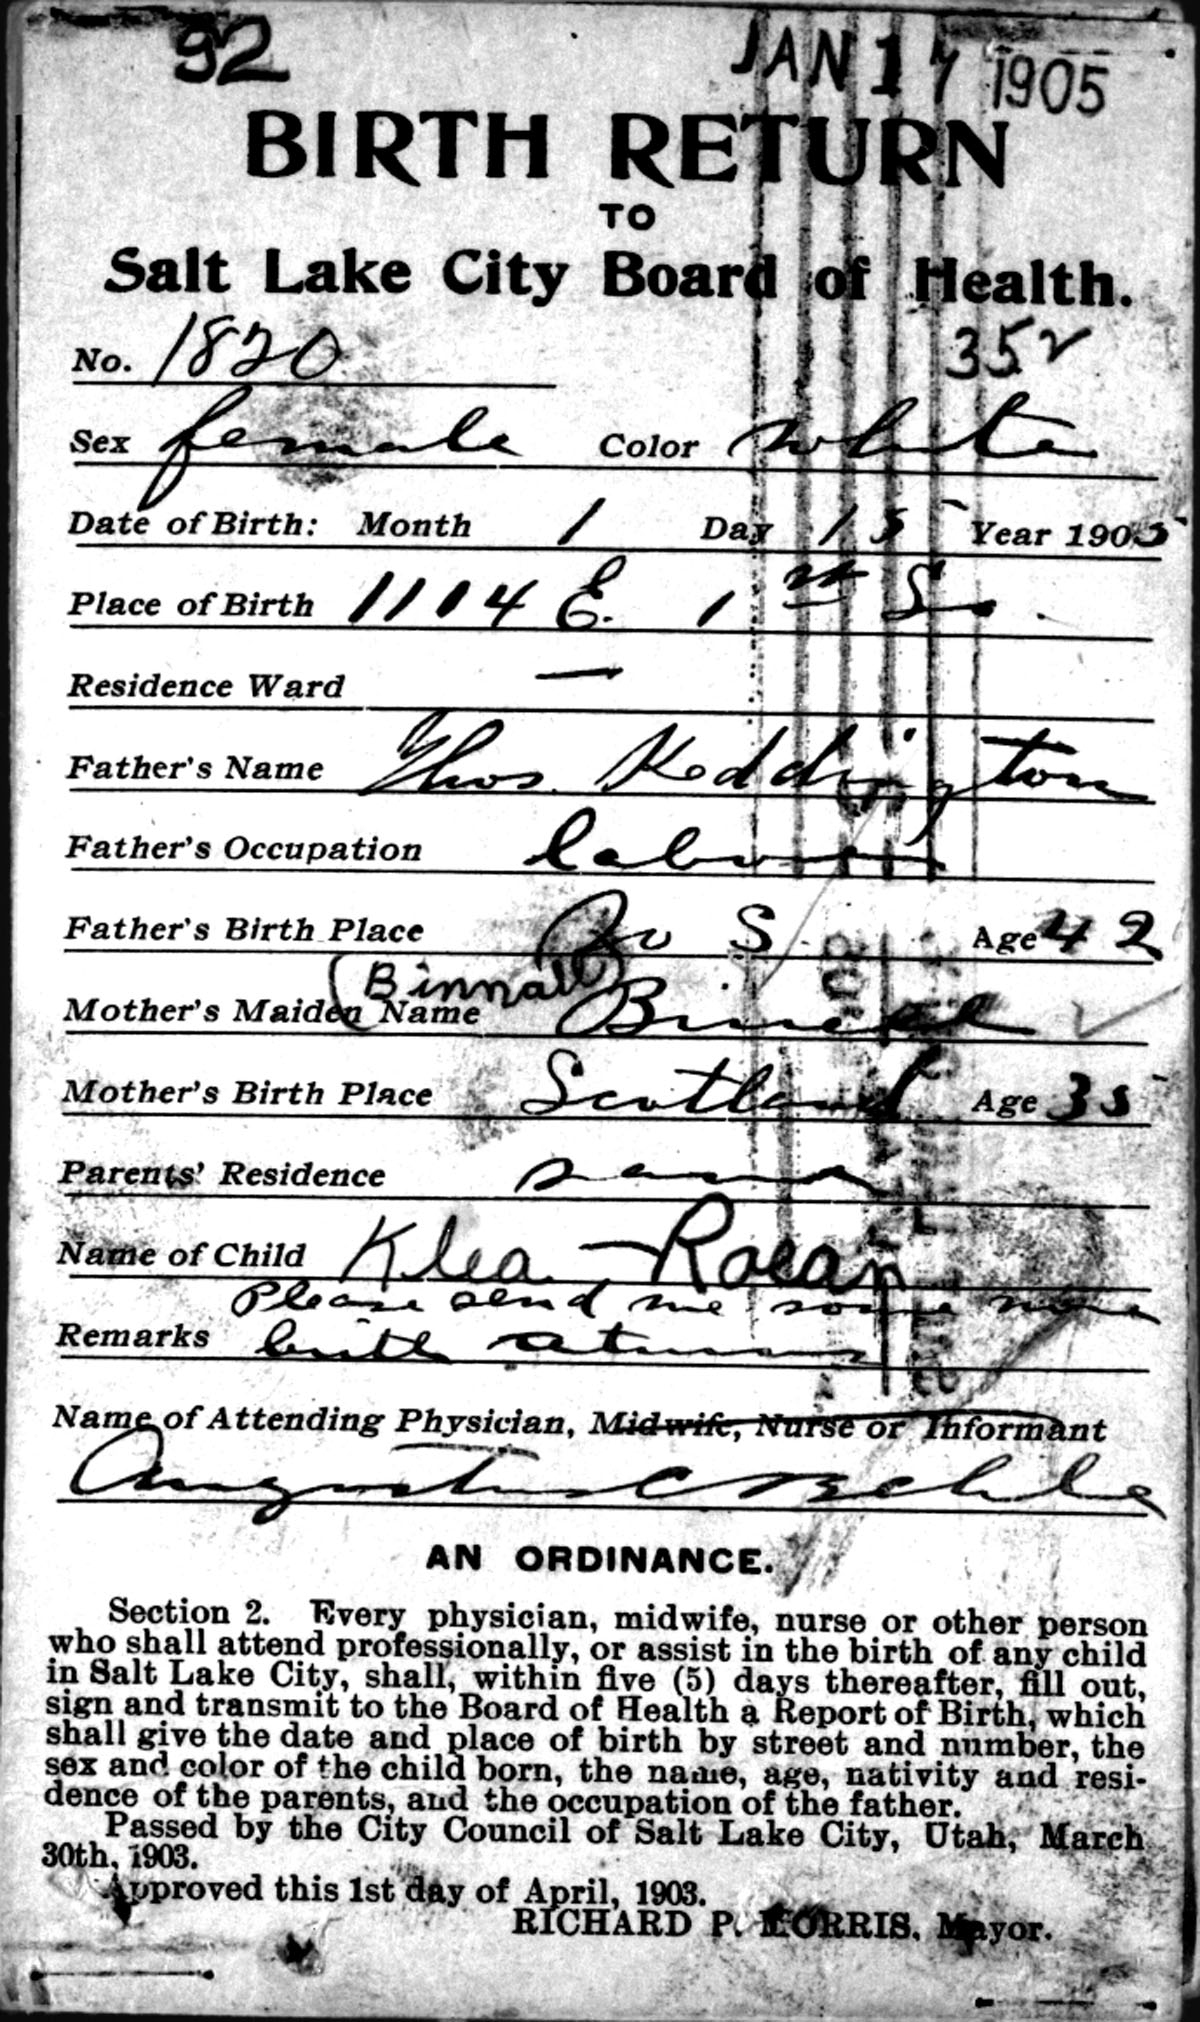 92 JAN 17 1905
BIRTH RETURN
TO
Salt Lake City Board of Health.
No. 1820 352
Sex female Color white
Date of Birth: Month 1 Day 15 Year 1905
Place of Birth 1114 E. 1st So.
Residence Ward —
Father's Name Thos. Keddington
Father's Occupation labor
Father's Birth Place S Age 42
(Binnall)
Mother's Maiden Name
Mother's Birth Place Scotland Age 35
Parents' Residence same
Name of Child Klea Roean
Please send me some more
Remarks birth returns
Name of Attending Physician, Midwife, Nurse or Informant
Augustus C Behle
AN ORDINANCE.
Section 2. Every physician, midwife, nurse or other person
who shall attend professionally, or assist in the birth of any child
in Salt Lake City, shall, within five (5) days thereafter, fill out,
sign and transmit to the Board of Health a Report of Birth, which
shall give the date and place of birth by street and number, the
sex and color of the child born, the name, age, nativity and resi-
dence of the parents, and the occupation of the father.
Passed by the City Council of Salt Lake City, Utah, March
30th, 1903.
Approved this 1st day of April, 1903.
RICHARD P. MORRIS, Mayor.